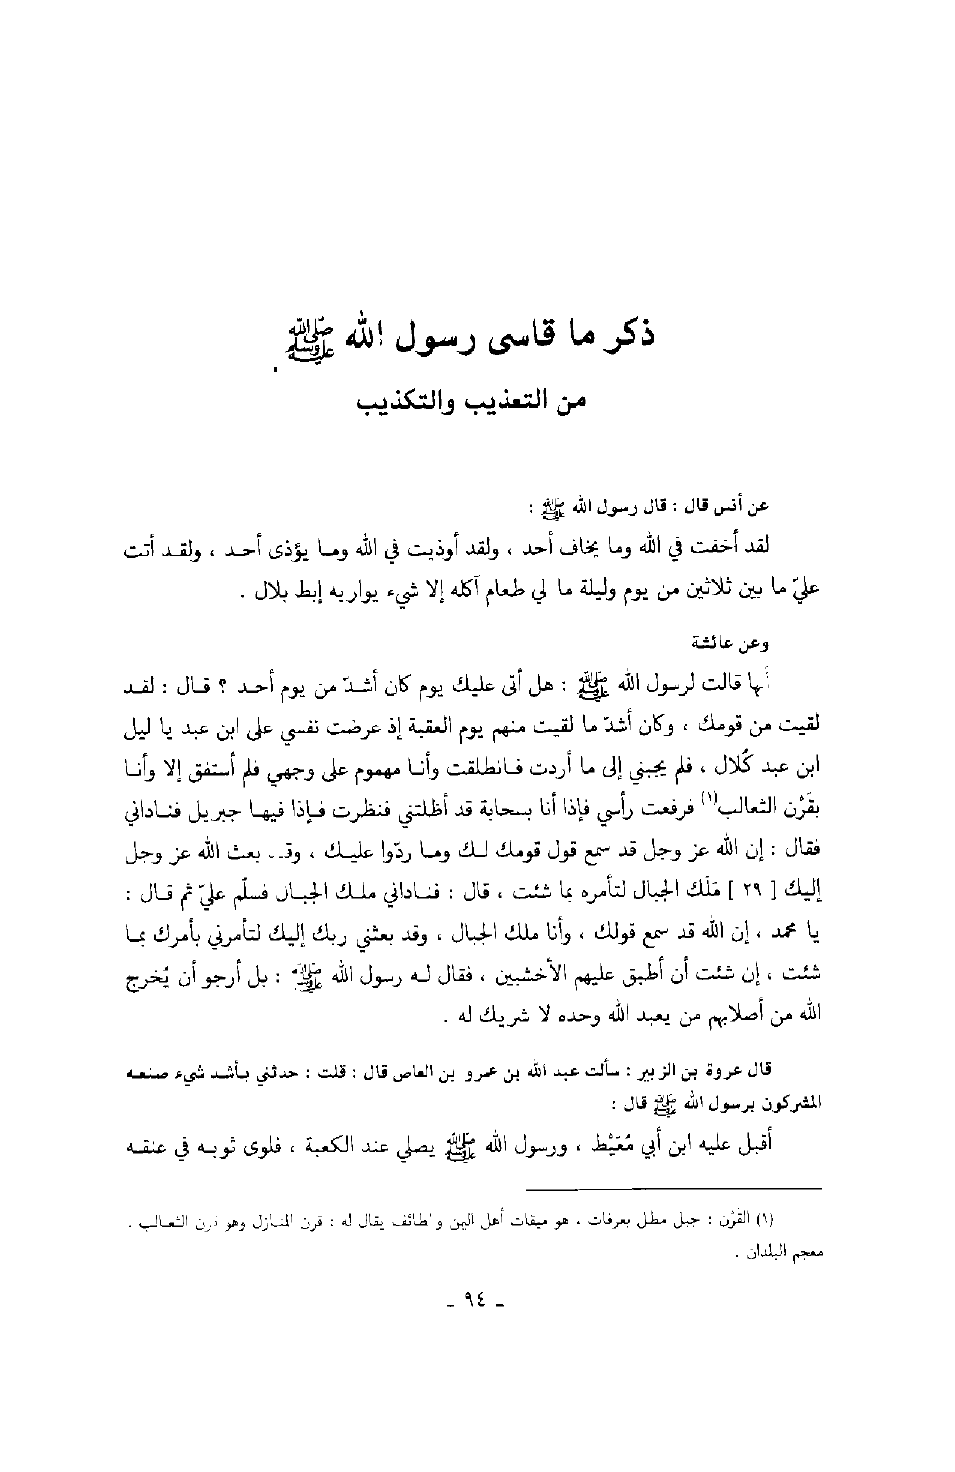 ذكر ما قاسى رسول الله ﷺ
من التعذيب والتكذيب
عن أنس قال : قال رسول الله ﷺ :
لقد أخفت في الله وما يخاف أحد ، ولقد أوذيت في الله وما يؤذى أحد ، ولقد أتت
عليّ ما بين ثلاثين من يوم وليلة ما لي طعام آكله إلا شيء يواريه إبط بلال .
وعن عائشة
أنها قالت لرسول الله ﷺ : هل أتى عليك يوم كان أشدّ من يوم أحد ؟ قال : لقد
لقيت من قومك ، وكان أشدّ ما لقيت منهم يوم العقبة إذ عرضت نفسي على ابن عبد يا ليل
ابن عبد كُلال ، فلم يجبني إلى ما أردت فانطلقت وأنا مهموم على وجهي فلم أستفق إلا وأنا
بقَرْن الثعالب(١) فرفعت رأسي فإذا أنا بسحابة قد أظلتني فنظرت فإذا فيها جبريل فناداني
فقال : إن الله عز وجل قد سمع قول قومك لك وما ردّوا عليك ، وقد بعث الله عز وجل
إليك [ ٢٩ ] مَلَك الجبال لتأمره بما شئت ، قال : فناداني ملك الجبال فسلّم عليّ ثم قال :
يا محمد ، إن الله قد سمع قولك ، وأنا ملك الجبال ، وقد بعثني ربك إليك لتأمرني بأمرك بما
شئت ، إن شئت أن أطبق عليهم الأخشبين ، فقال له رسول الله ﷺ : بل أرجو أن يُخرج
الله من أصلابهم من يعبد الله وحده لا شريك له .
قال عروة بن الزبير : سألت عبد الله بن عمرو بن العاص قال : قلت : حدثني بأشد شيء صنعه
المشركون برسول الله ﷺ قال :
أقبل عليه ابن أبي مُعَيْط ، ورسول الله ﷺ يصلي عند الكعبة ، فلوى ثوبه في عنقه
(١) القَرْن : جبل مطل بعرفات ، هو ميقات أهل اليمن والطائف يقال له : قرن المنازل وهو قرن الثعالب .
معجم البلدان .
- ٩٤ -